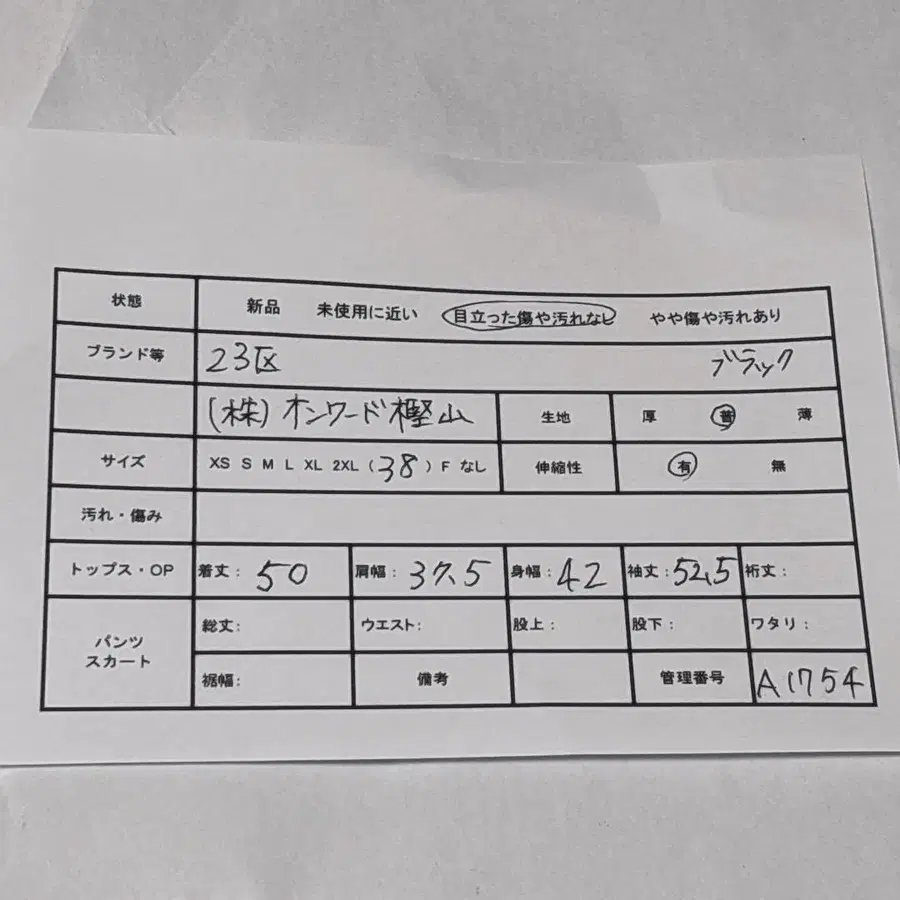 状態 新品 未使用に近い 目立った傷や汚れなし やや傷や汚れあり
ブランド等 23区 ブラック
(株)オンワード樫山 生地 厚 普 薄
サイズ XS S M L XL 2XL (38) F なし 伸縮性 有 無
汚れ・傷み
トップス・OP 着丈: 50 肩幅: 37.5 身幅: 42 袖丈: 52.5 裄丈:
パンツ スカート 総丈: ウエスト: 股上: 股下: ワタリ:
裾幅: 備考 管理番号 A1754